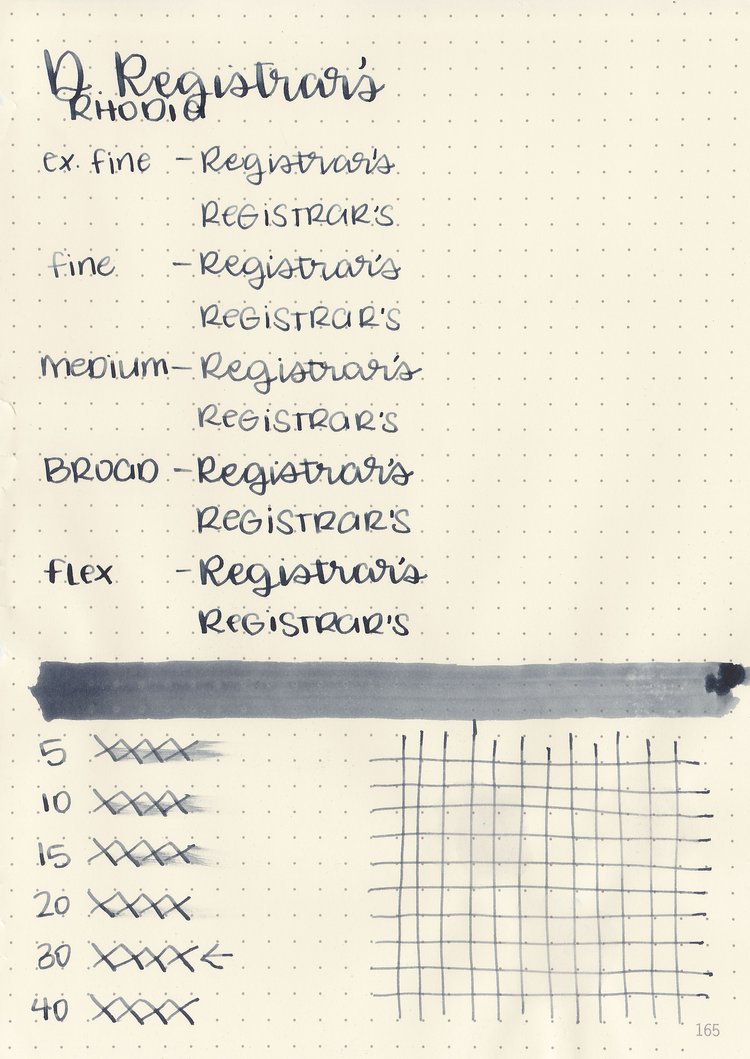 D. Registrar's
RHODIA
ex. fine - Registrar's
REGISTRAR'S
fine - Registrar's
REGISTRAR'S
MEDIUM - Registrar's
REGISTRAR'S
BROAD - Registrar's
REGISTRAR'S
FLEX - Registrar's
REGISTRAR'S
5 XXXX
10 XXXX
15 XXXX
20 XXXX
30 XXXX ←
40 XXXX
165